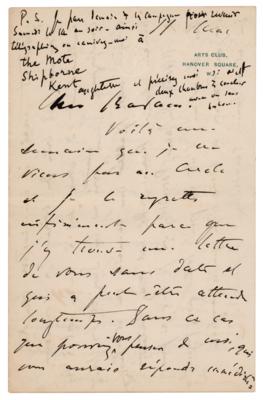 P.S. Je pars demain à la campagne pour revenir
Samedi
ainsi
télégraphiez ou écrivez-moi à
the Mote
Shipborne
Kent
Angleterre et précisez-moi
deux chambres à coucher
avec ou sans
salon
ARTS CLUB,
HANOVER SQUARE,
W.
Cher
Voilà une
semaine que je ne
viens pas au Cercle
et je le regrette
infiniment parce que
j'y trouve une lettre
de vous sans date et
qui a peut-être attendu
longtemps. Dans ce cas
que pourriez vous penser de moi, qui
vous aurais répondu immédiate